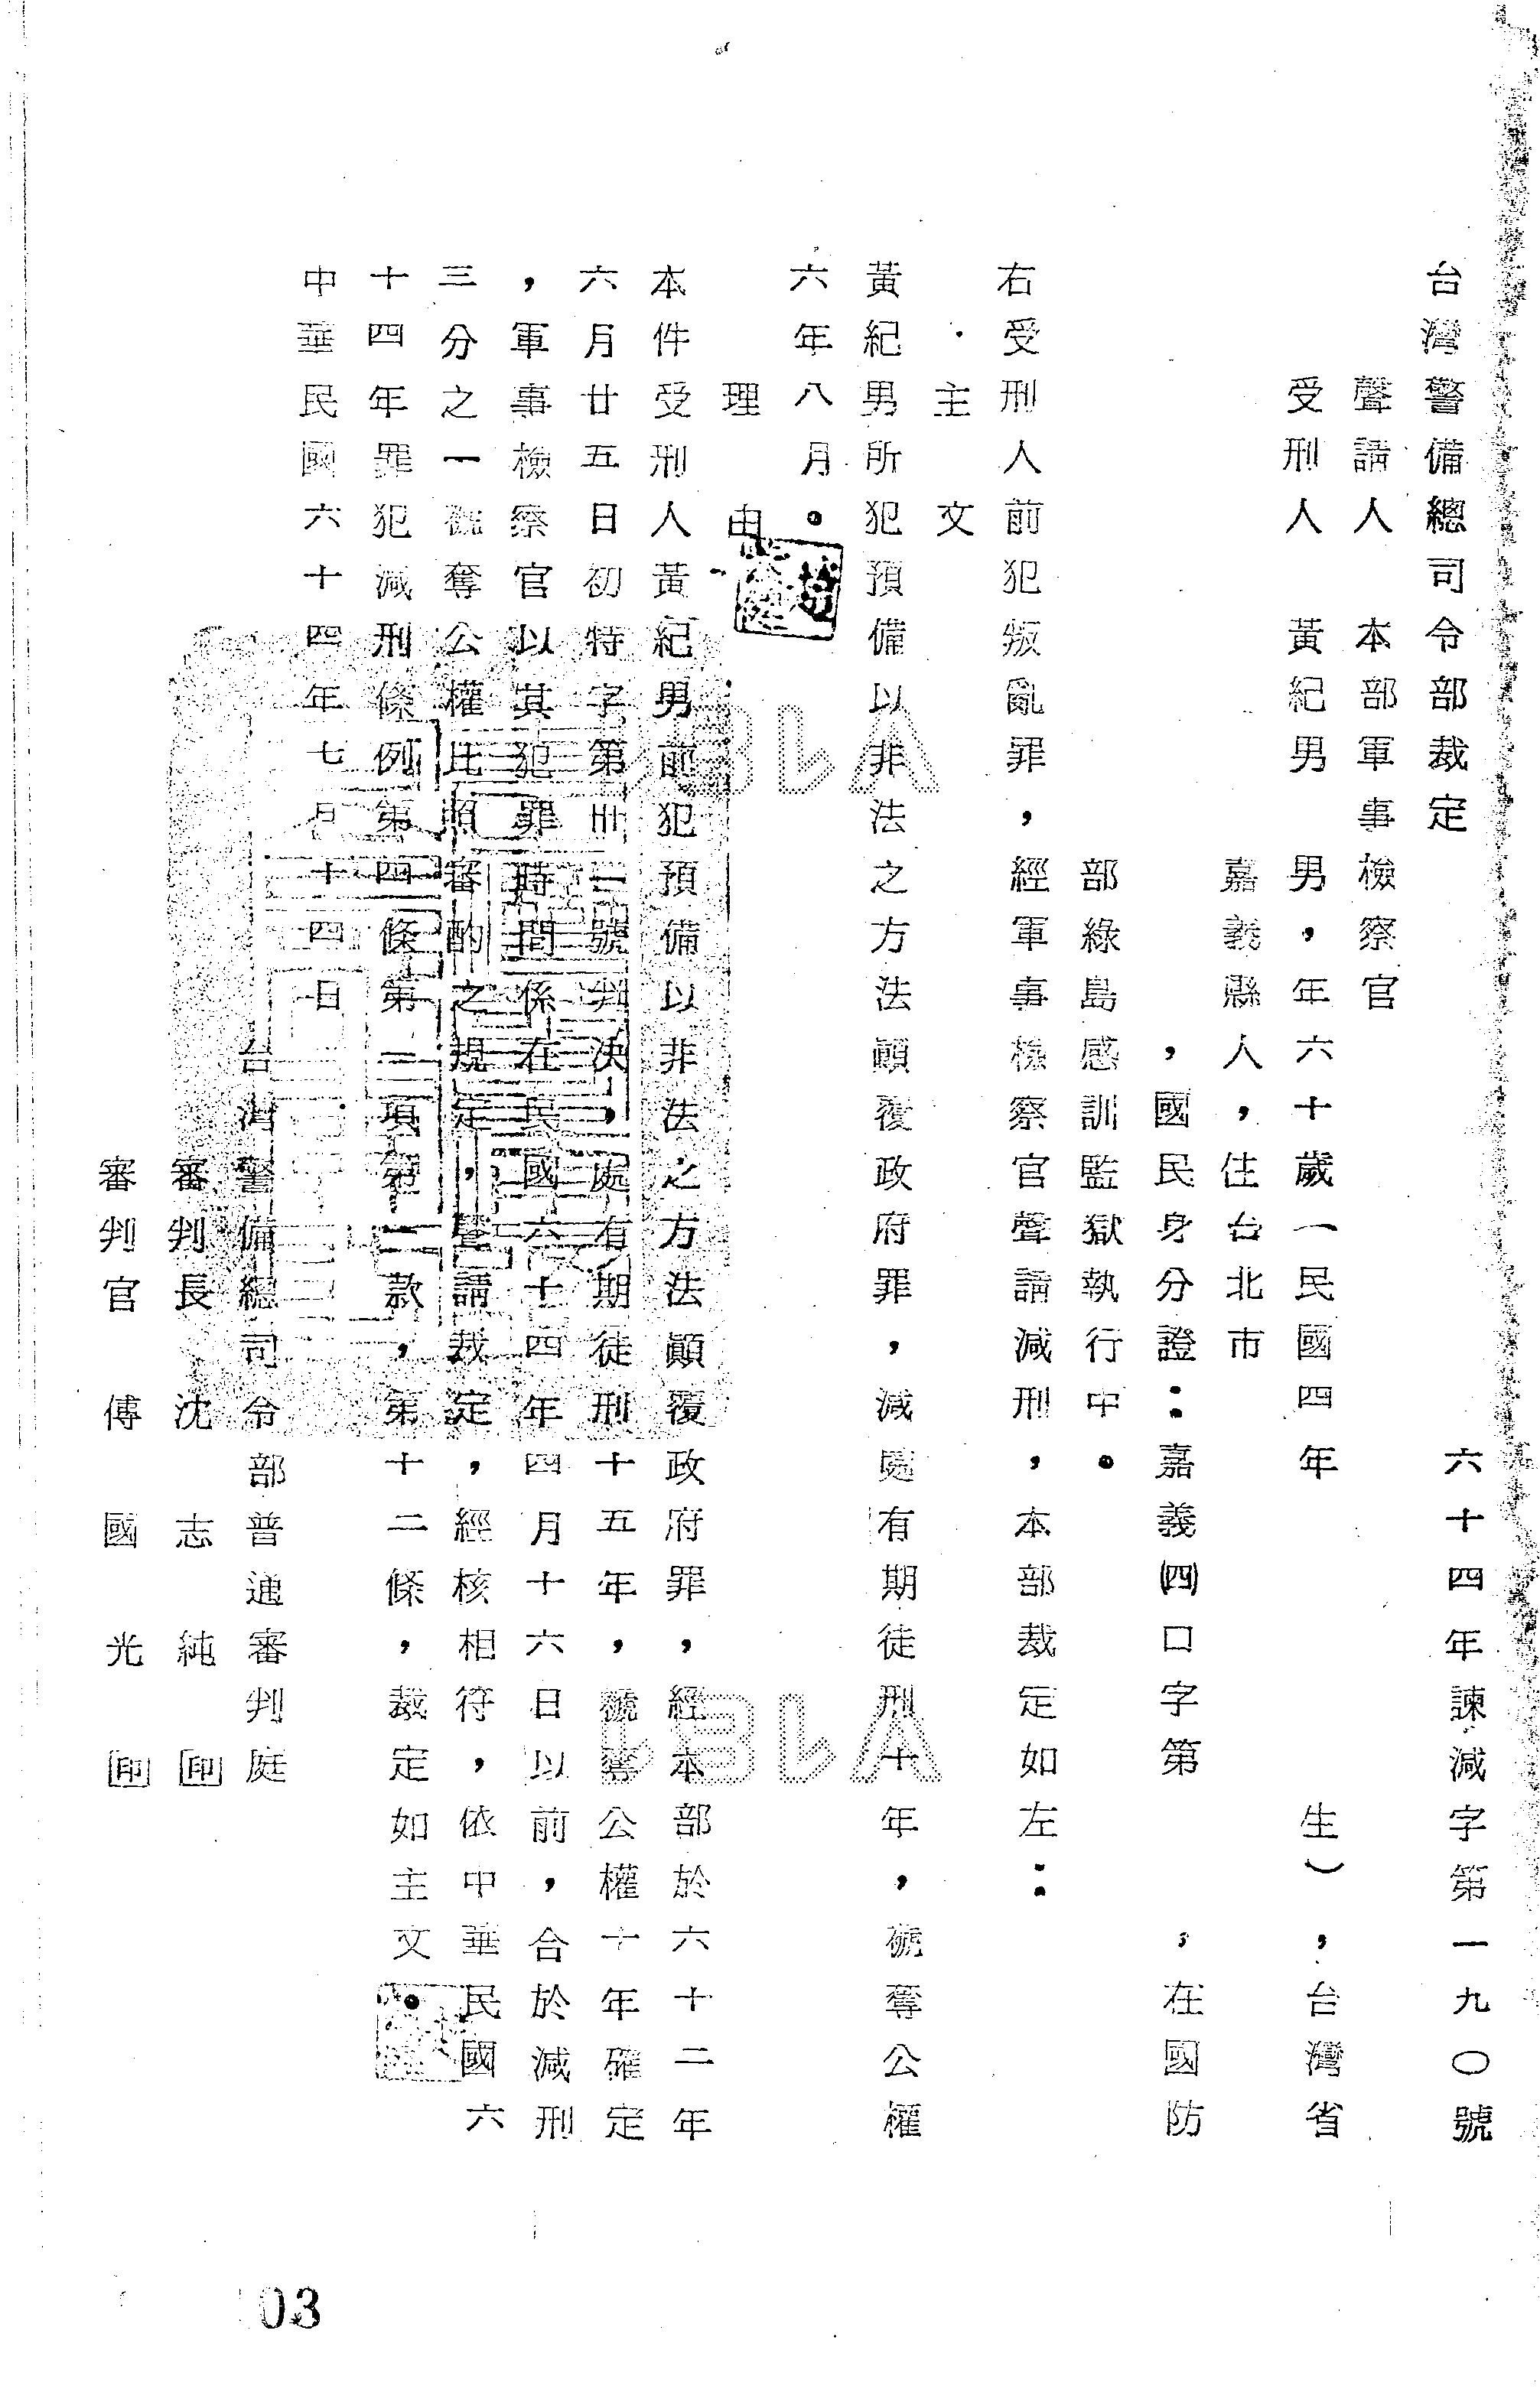 台灣警備總司令部裁定 六十四年諫減字第一九〇號
聲請人 本部軍事檢察官
受刑人 黃紀男 男，年六十歲一民國四年 生），台灣省
嘉義縣人，住台北市
，國民身分證：嘉義㈣口字第 ，在國防
部綠島感訓監獄執行中。
右受刑人前犯叛亂罪，經軍事檢察官聲請減刑，本部裁定如左：
主文
黃紀男所犯預備以非法之方法顛覆政府罪，減處有期徒刑十年，褫奪公權
六年八月。
理由
本件受刑人黃紀男前犯預備以非法之方法顛覆政府罪，經本部於六十二年
六月廿五日初特字第卅一號判決，處有期徒刑十五年，褫奪公權十年確定
，軍事檢察官以其犯罪時間係在民國六十四年四月十六日以前，合於減刑
三分之一褫奪公權比照審酌之規定，聲請裁定，經核相符，依中華民國六
十四年罪犯減刑條例第四條第一項第二款，第十二條，裁定如主文。
中華民國六十四年七月十四日
台灣警備總司令部普通審判庭
審判長 沈志純 印
審判官 傅國光 印
03
A1B1
A1B1